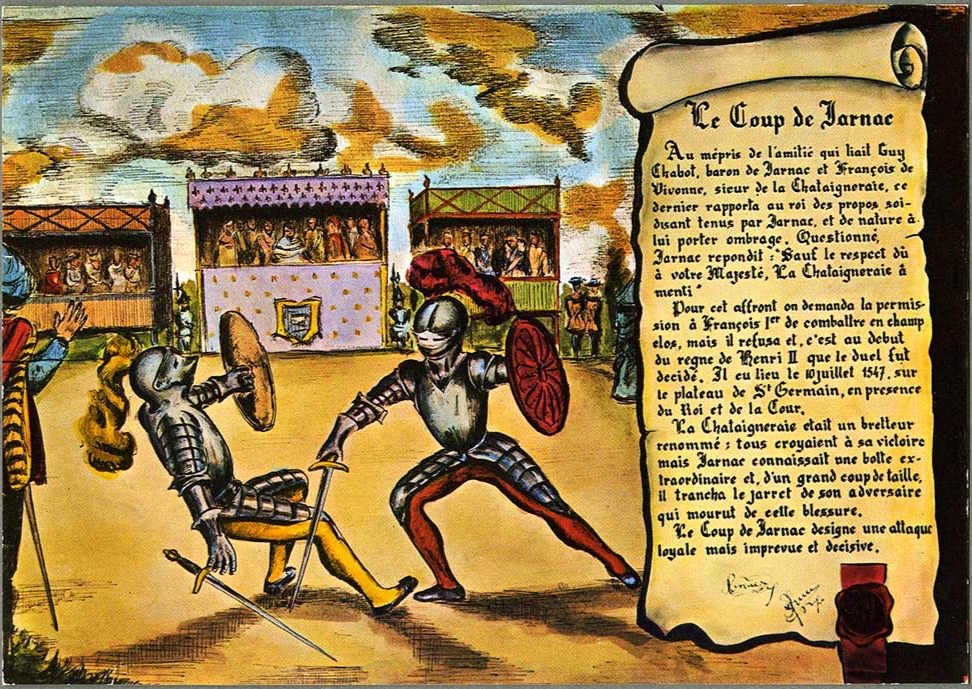 Le Coup de Jarnac
Au mépris de l'amitié qui liait Guy
Chabot, baron de Jarnac et François de
Vivonne, sieur de la Chataigneraie, ce
dernier rapporta au roi des propos soi-
disant tenus par Jarnac, et de nature à
lui porter ombrage. Questionné,
Jarnac repondit : "Sauf le respect dû
à votre Majesté, La Chataigneraie à
menti"
Pour cet affront on demanda la permis-
sion à François 1er de combattre en champ
clos, mais il refusa et, c'est au debut
du regne de Henri II que le duel fut
decidé. Il eu lieu le 10 juillet 1547, sur
le plateau de St Germain, en presence
du Roi et de la Cour.
La Chataigneraie etait un bretteur
renommé : tous croyaient à sa victoire
mais Jarnac connaissait une botte ex-
traordinaire et, d'un grand coup de taille,
il trancha le jarret de son adversaire
qui mourut de cette blessure.
Le Coup de Jarnac designe une attaque
loyale mais imprevue et decisive.